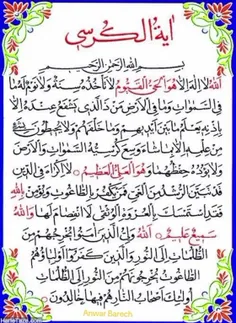 آیة الکرسی
بسم الله الرحمن الرحیم
الله لا اله الا هو الحی القیوم لا تأخذه سنة ولا نوم له ما
فی السموات وما فی الارض من ذا الذی یشفع عنده الا
باذنه یعلم ما بین ایدیهم وما خلفهم ولا یحیطون بشیء
من علمه الا بما شاء وسع کرسیه السموات والارض
ولا یؤده حفظهما وهو العلی العظیم لا اکراه فی الدین
قد تبین الرشد من الغی فمن یکفر بالطاغوت ویؤمن بالله
فقد استمسک بالعروة الوثقی لا انفصام لها والله
سمیع علیم الله ولی الذین آمنوا یخرجهم من
الظلمات الی النور والذین کفروا اولیاؤهم
الطاغوت یخرجونهم من النور الی الظلمات
اولئک اصحاب النار هم فیها خالدون
Anwar Barech